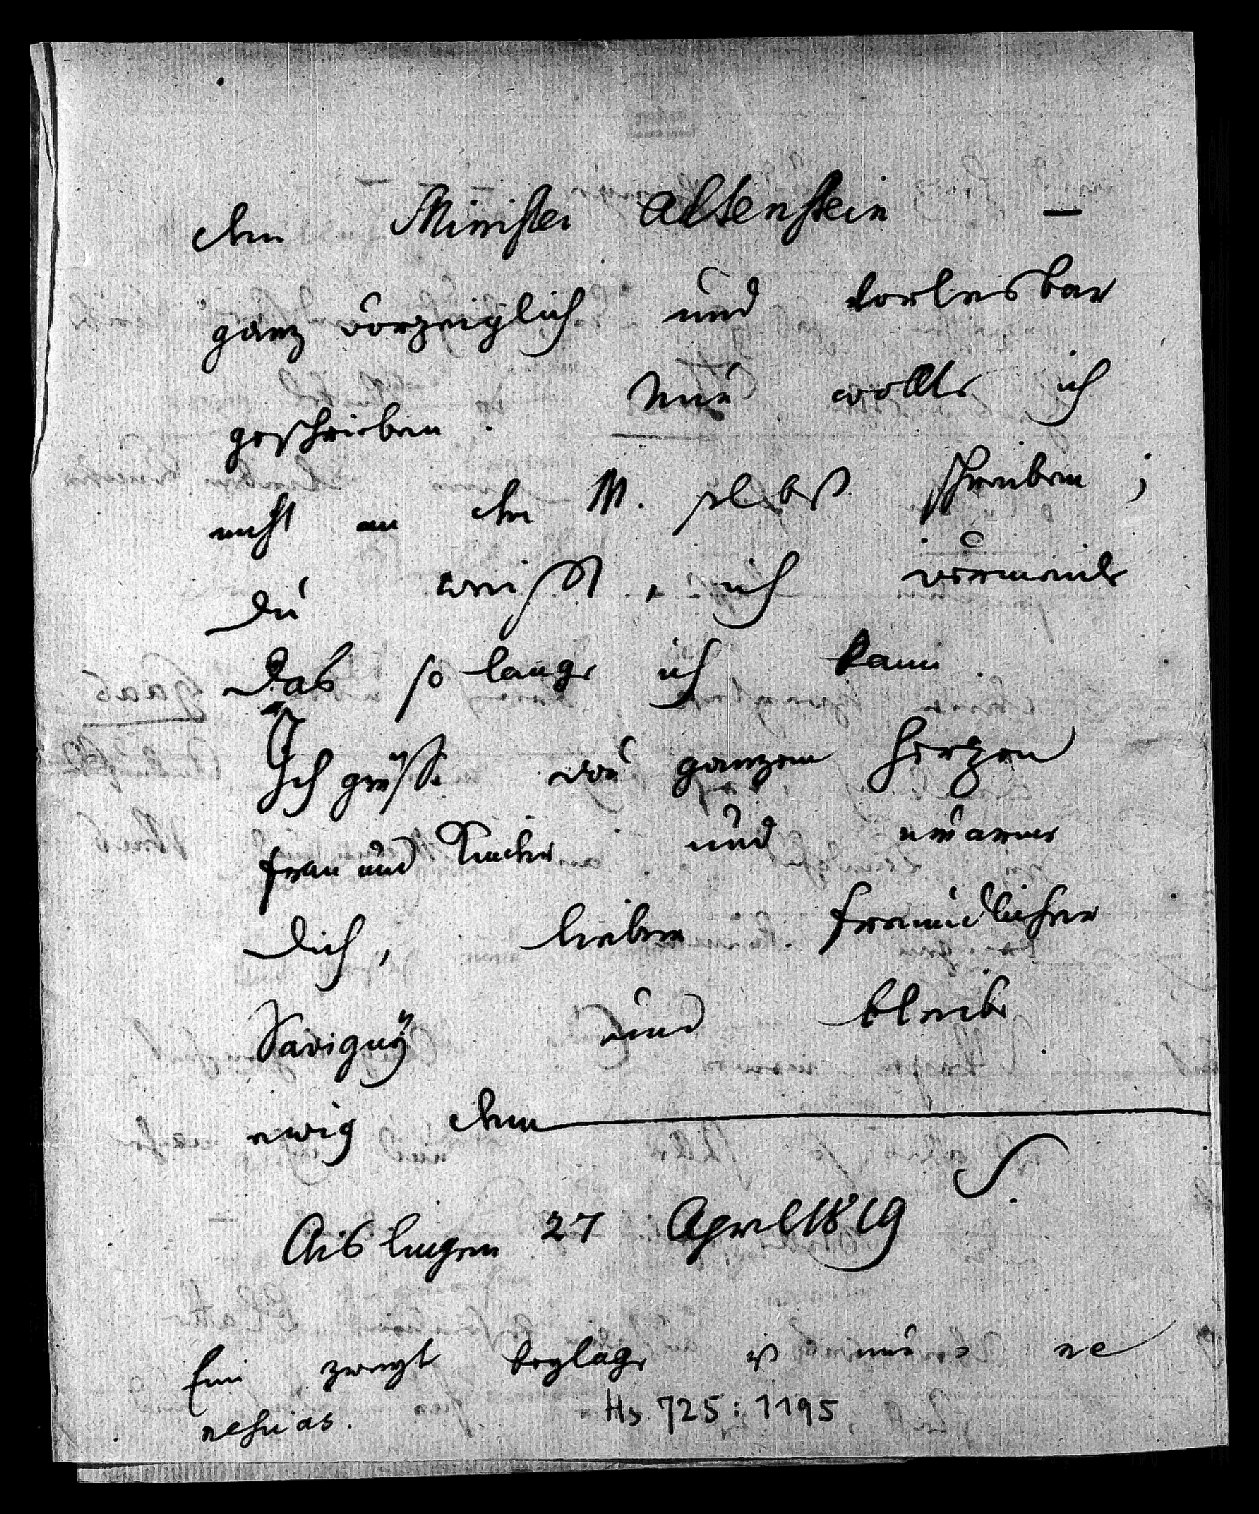 dem Minister Altenstein —
ganz vorzeiglich und vorlesbar
geschrieben. Nun wollte ich
nicht an den M. selbst schreiben;
Du weißt, ich vermeide
das so lange ich kann.
Ich grüße von ganzem Herzen
Frau und Kinder und umarme
Dich, lieber freundlicher
Savigny und bleibe
ewig dein
S.
Aislingen 27 April 1819
Eine zweyte Beylage ist nur ne
nescias.
Hs. 725: 1195